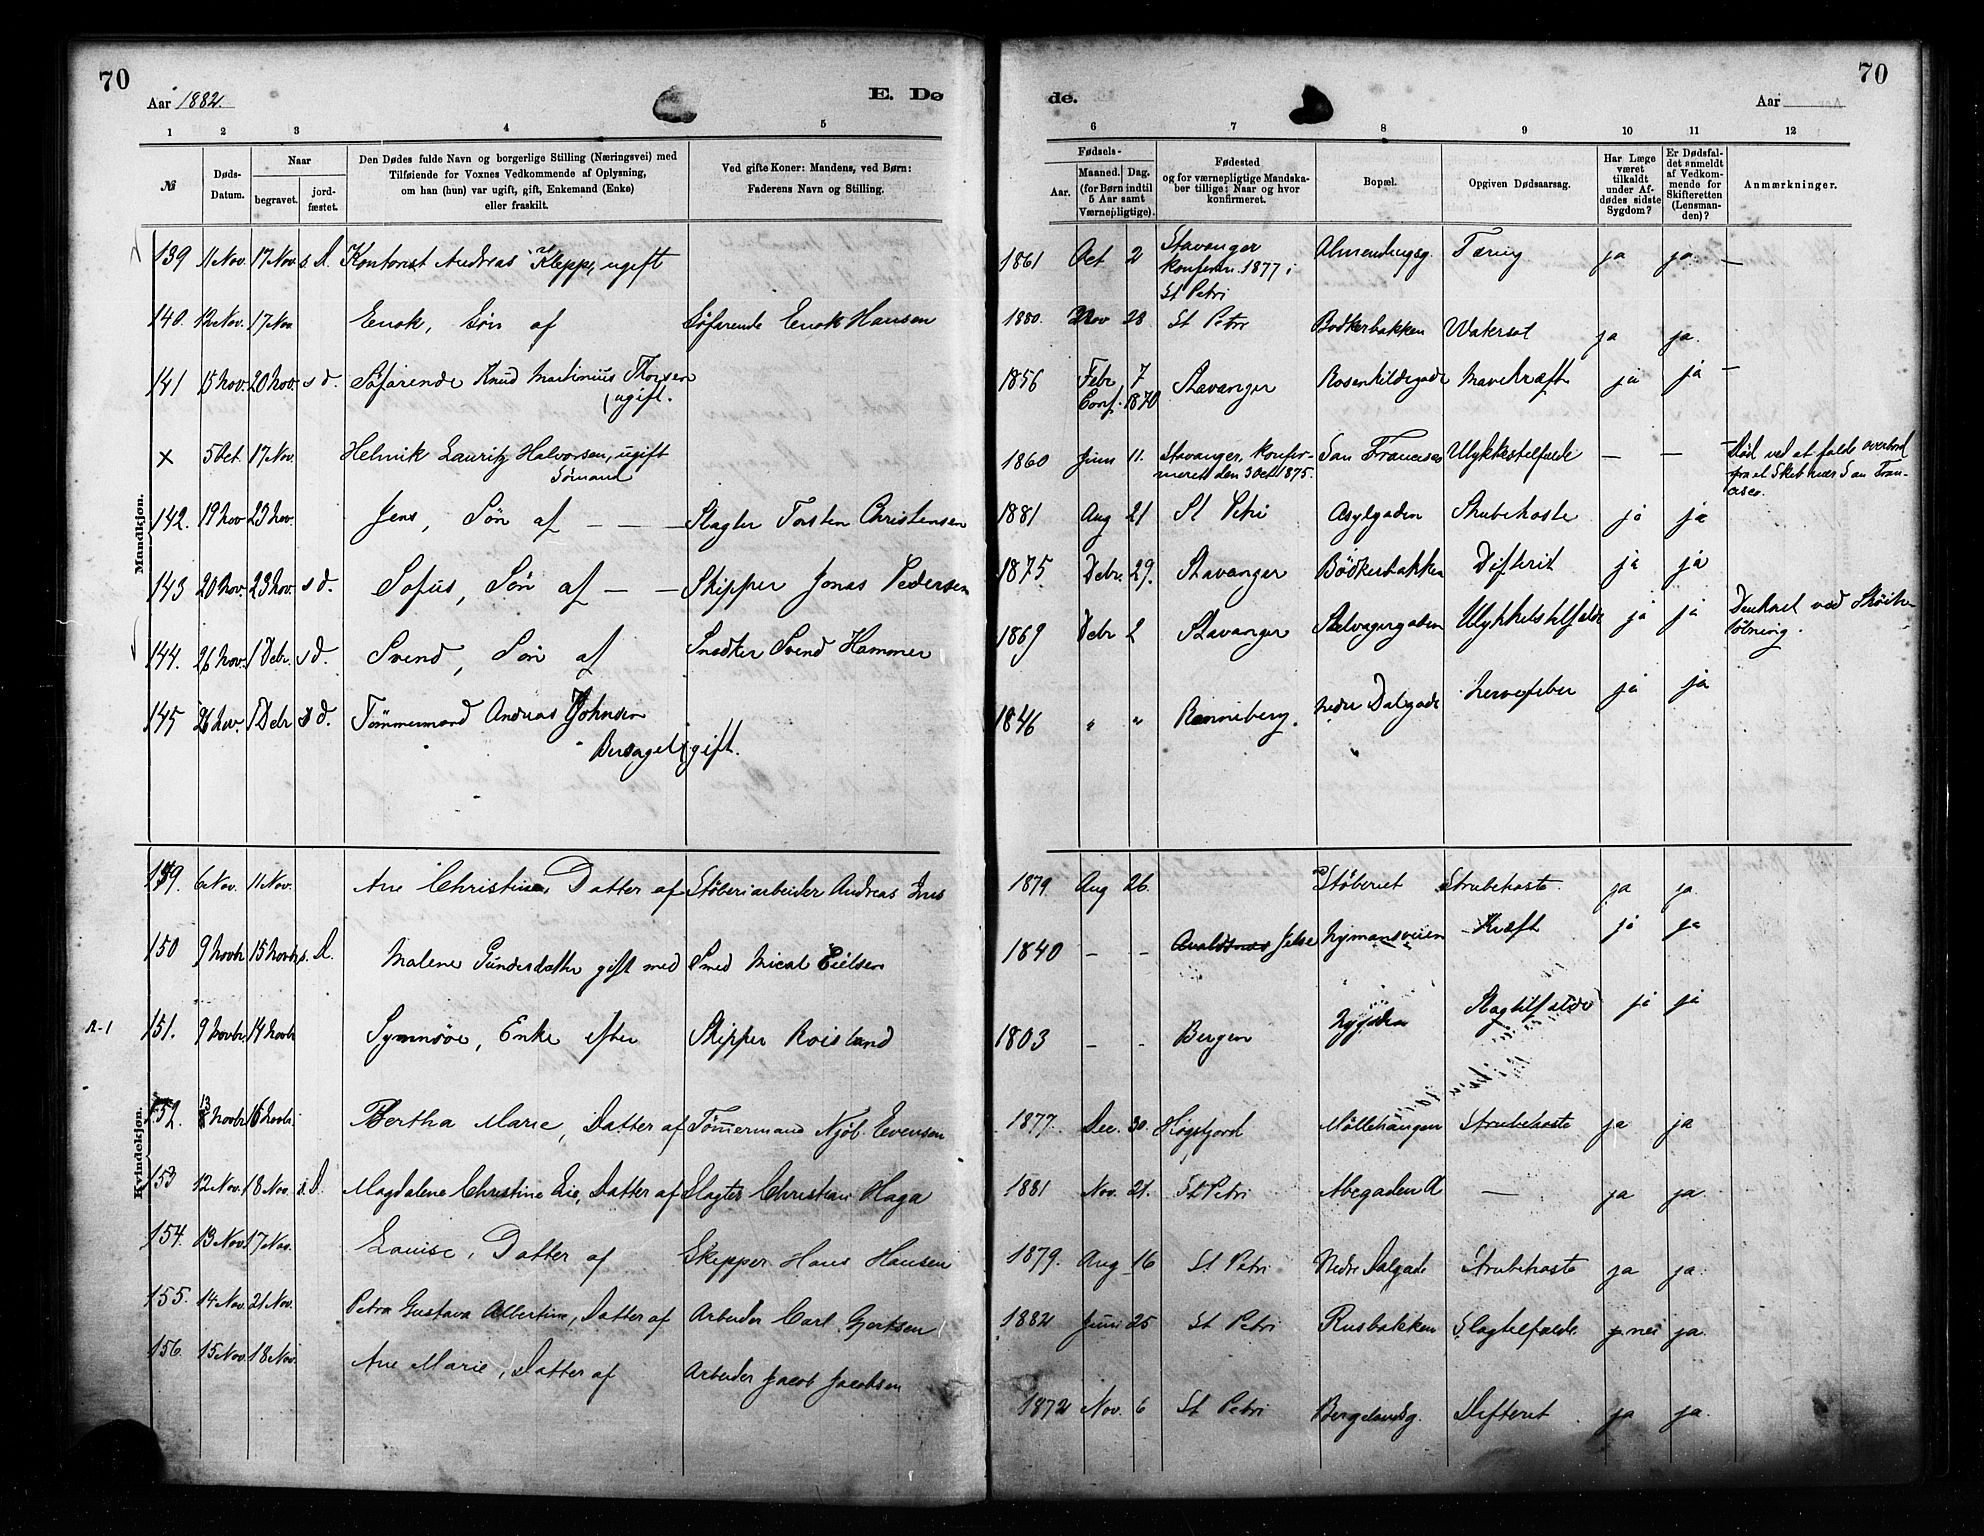 70
Aar 1882.
E. Dø
de.
Aar
70
1 2 3 4 5 6 7 8 9 10 11 12
№
Døds-Datum.
Naar
begravet.
jord-fæstet.
Den Dødes fulde Navn og borgerlige Stilling (Næringsvei) med
Tilføiende for Voxnes Vedkommende af Oplysning,
om han (hun) var ugift, gift, Enkemand (Enke)
eller fraskilt.
Ved gifte Koner: Mandens, ved Børn:
Faderens Navn og Stilling.
Fødsels-
Aar.
Maaned. Dag.
(for Børn indtil
5 Aar samt
Værnepligtige).
Fødested
og for værnepligtige Mandska-
ber tillige: Naar og hvor
konfirmeret.
Bopæl.
Opgiven Dødsaarsag.
Har Læge
været
tilkaldt
under Af-
dødes sidste
Sygdom?
Er Dødsfal-
det anmeldt
af Vedkom-
mende for
Skifteretten
(Lensman-
den)?
Anmærkninger.
Mandkjøn.
139 11 Nov. 17 Nov. s.D. Kontorist Andreas Kleppe, ugift 1861 Oct 2 Stavanger Tæring ja ja —
konfirm. 1877 i
St Petri
140. 12 Nov. 17 Nov Enok, Søn af Søfarende Enok Hansen 1880. Nov 28 St Petri Bødkerbakken Watersot ja ja.
141 15 Nov. 20 Nov. s d. Søfarende Knud Martinius Thorsen 1856 Febr 7 Stavanger Rosenkildegade Mavekræft ja ja —
ugift. Conf. 1870
x 5 Oct. 17 Nov. Helmik Lauritz Halvorsen, ugift 1860 Juni 11. Stavanger, konfir- San Francisco Ulykkestilfælde — — Død ved at falde overbord
Sømand meret den 3 Oct 1875. fra et Skib nær San Fran-
cisco.
142. 19 Nov 23 Nov. Jens, Søn af — — Slagter Torsten Christensen 1881 Aug 21 St Petri Asylgaden Strubehoste ja ja
143 20 Nov. 23 Nov. s d. Sofus, Søn af — — Skipper Jonas Pedersen 1875 Debr. 29. Stavanger Bödkerbakken Difterit ja ja
144. 26 Nov. 1 Debr. s d. Svend, Søn af Snedker Svend Hammer 1869 Debr 2 Stavanger Ulykkelstilfælde ja ja Druknet ved Skøite-
løbning.
145 26 Nov. 1 Debr s d. Tømmermand Andreas Johnsen 1846 " " Renneberg. Nedre Dalgade Nervefeber ja ja
Bersagel gift.
Kvindekjøn.
149. 6 Nov. 11 Nov. Ane Christine, Datter af Støberiarbeider Andreas 1879. Aug 26. Støberiet Strubehoste. ja ja.
150 9 Novbr 15 Novbr s. D. Malene Gundersdatter gift med Smed Mical Eielsen 1840 — — Jelse Nymansveien Kræft ja ja
A-1 151. 9 Novbr 14 Novbr Synnøve, Enke efter Skipper Roisland 1803 — - Bergen Nygaden Slagtilfælde ja ja
152. 13 Novbr 16 Novbr Bertha Marie, Datter af Tømmermand Evensen 1877. Dec. 30. Høgsfjord Möllehaugen Strubehoste ja ja
153 12 Nov. 18 Nov. s. D. Magdalene Christine Lie, Datter af Slagter Christian Haga 1881 Nov. 21. St Petri — ja ja.
154. 13 Nov. 17 Nov. Louise, Datter af Skipper Hans Hansen 1879. Aug 16 St Petri Nedre Dalgade Strubehoste ja ja.
155. 14 Nov. 21 Nov. Petra Gustava Albertine, Datter af Arbeider Carl Gjertsen 1882 Juni 25 St Petri Rusbakken Slagtilfælde. nei ja.
156. 15 Nov. 18 Nov. Ane Marie, Datter af Arbeider Jacob Jacobsen 1872 Nov. 6 St Petri Bergelandsg. Difterit ja ja.